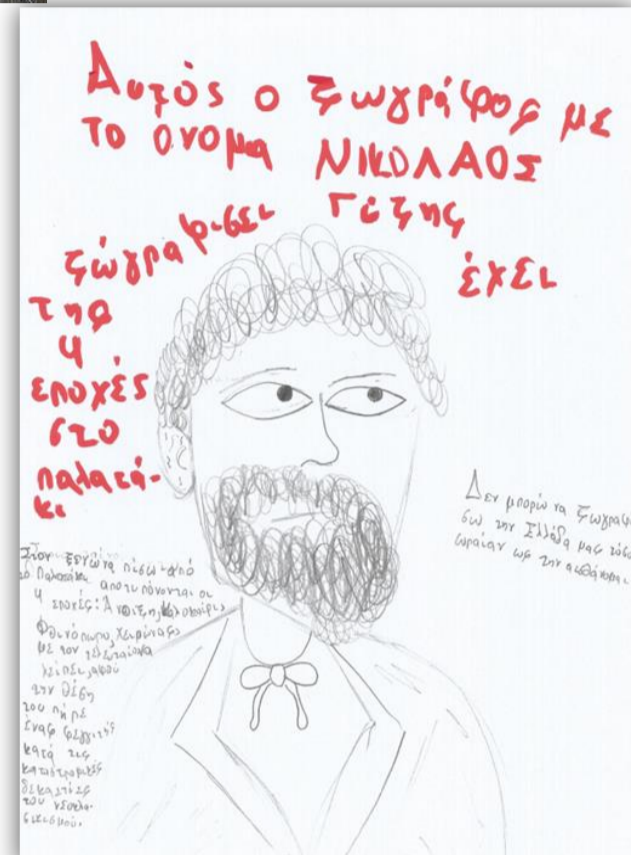 Αυτός ο ζωγράφος με
το όνομα ΝΙΚΟΛΑΟΣ
Γύζης
έχει
ζωγραφισει
της
4
εποχές
στο
παλατά-
κι
Δεν μπορώ να ζωγραφί
σω την Ελλάδα μας τόσο
ωραίαν ως την αισθάνομαι.
Στον ξενώνα πίσω από
το Παλατάκι αποτυπόνονται οι
4 εποχές: Άνοιξη, Καλοκαίρι,
Φθινόπωρο, Χειμώνας
με τον τελευταίο να
λείπει, αφού
την θέση
του πήρε
ένας φεγγίτης
κατά τις
καταστροφικές
δεκαετίες
του νεοπλα-